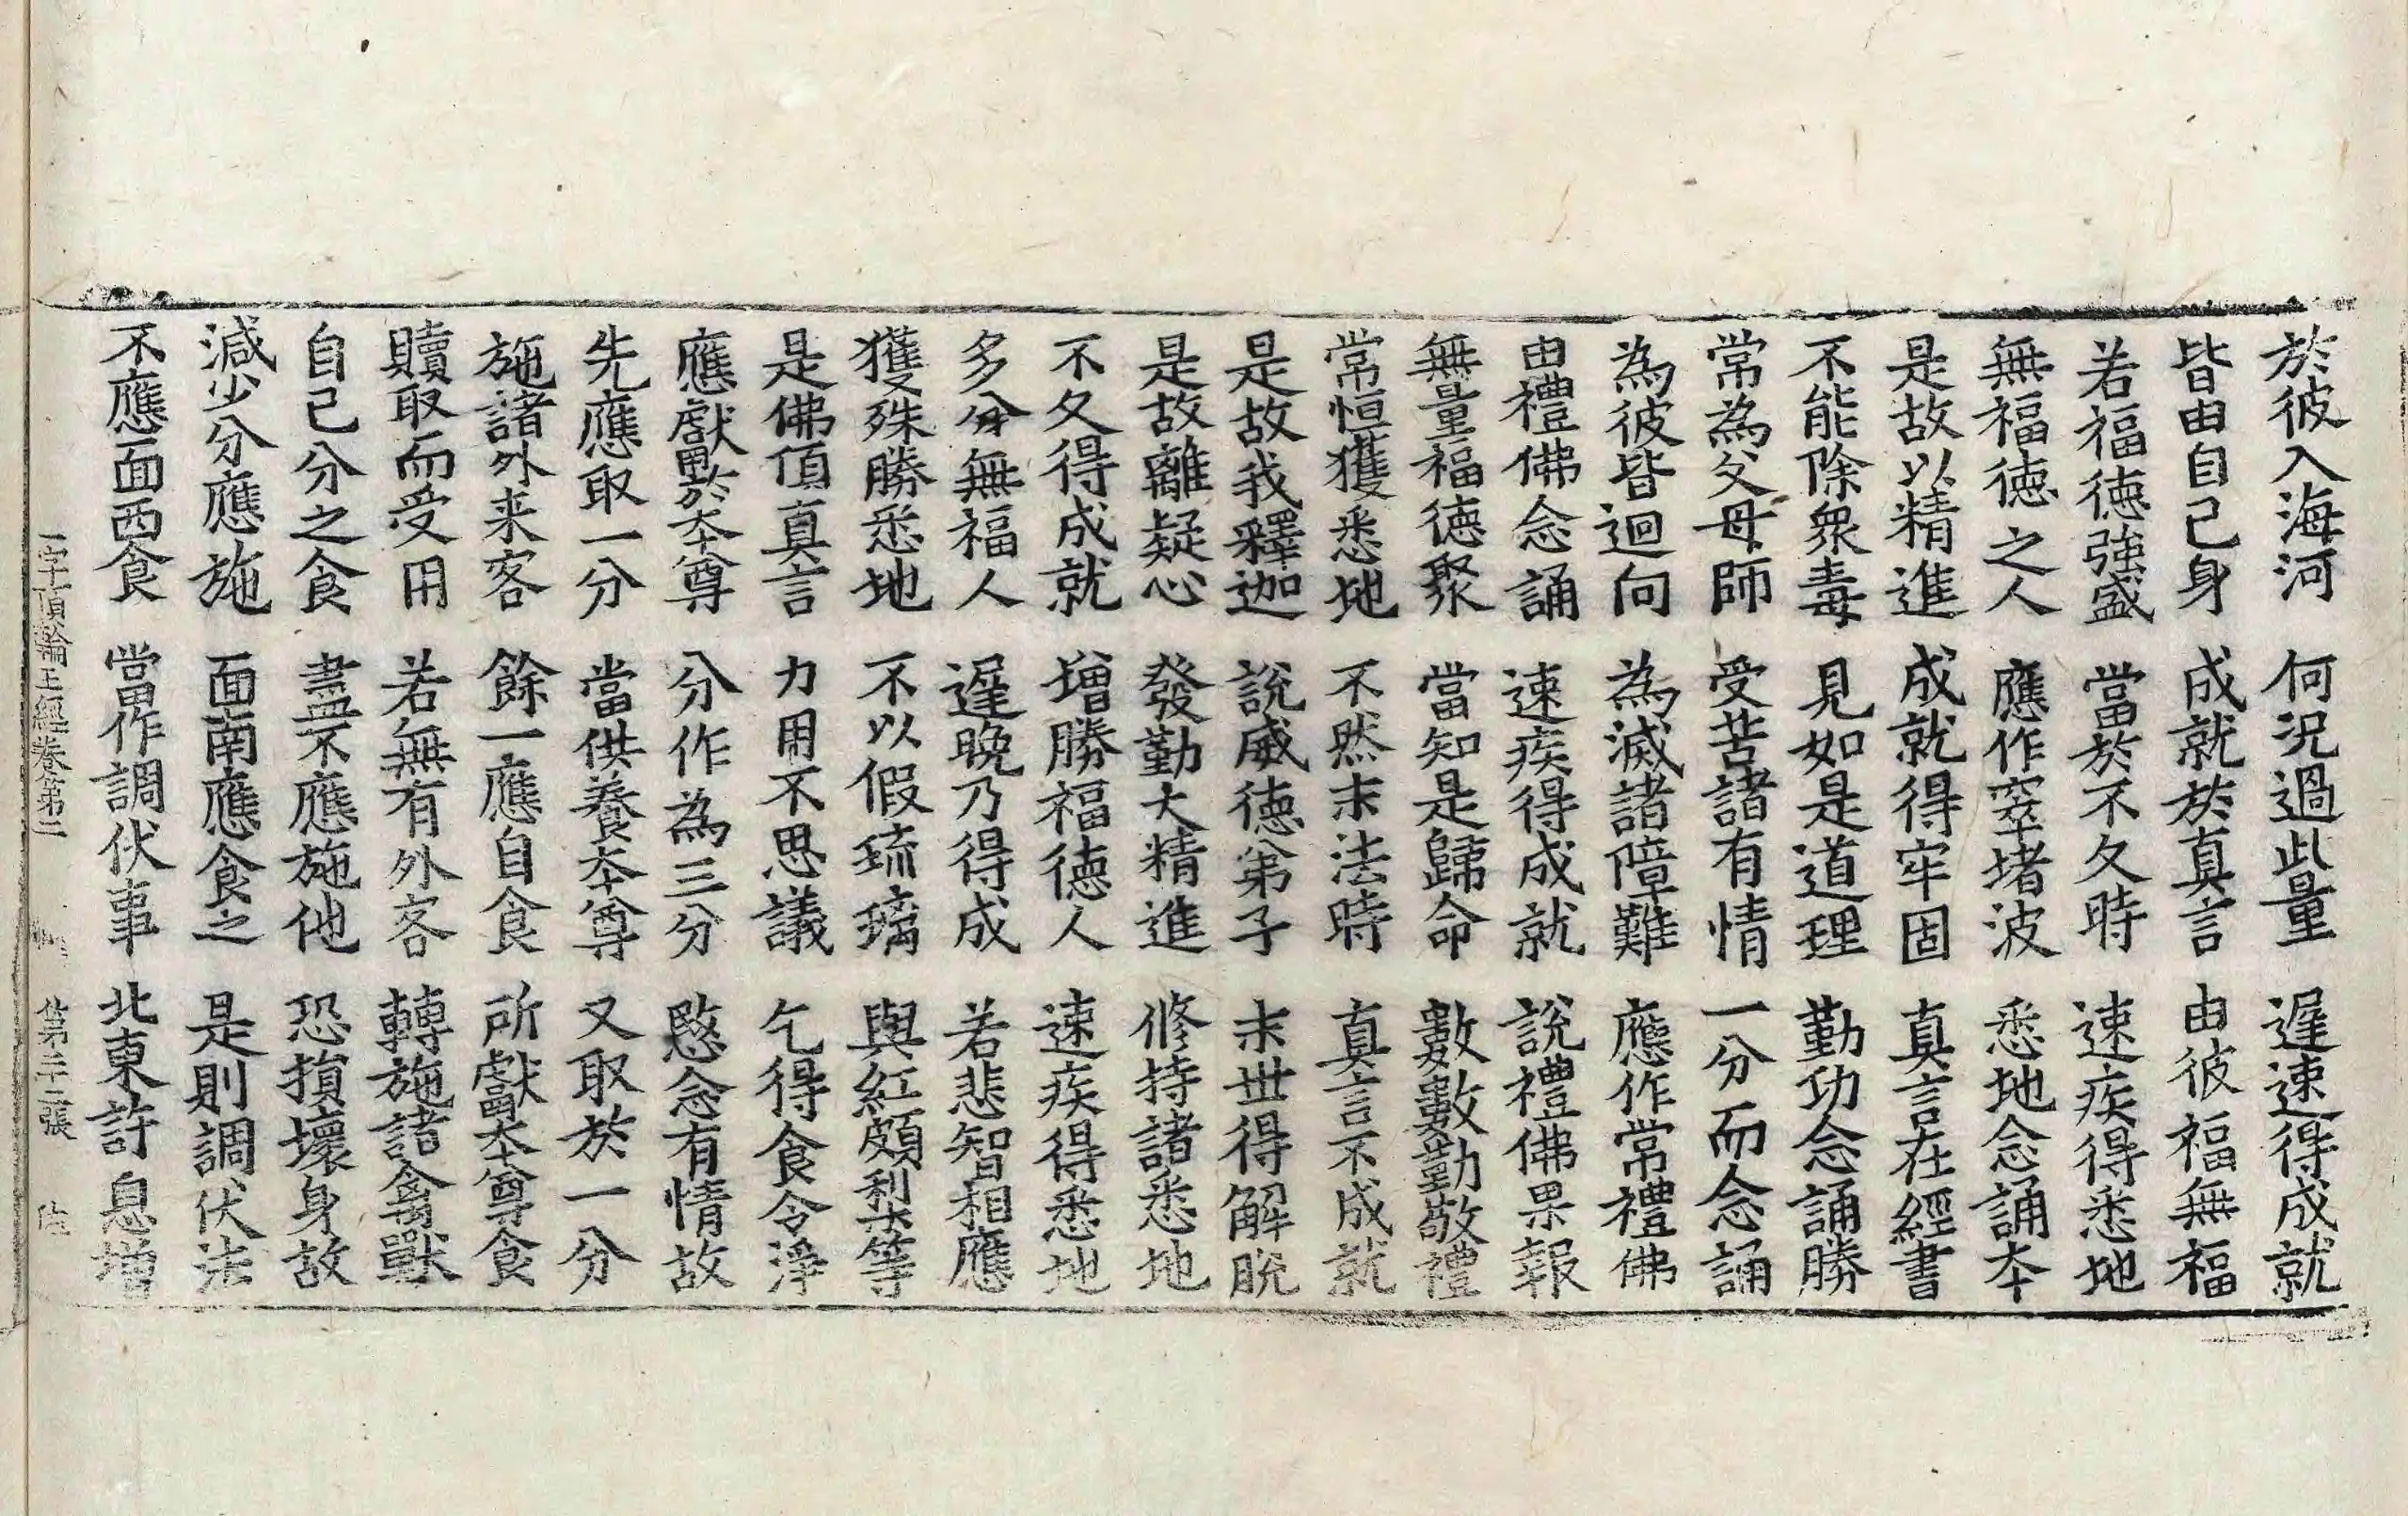 於彼入海河　何況過此量　遲速得成就
皆由自己身　成就於真言　由彼福無福
若福德強盛　當於不久時　速疾得悉地
無福德之人　應作窣堵波　悉地念誦本
是故以精進　成就得牢固　真言在經書
不能除衆毒　見如是道理　勤功念誦勝
常為父母師　受苦諸有情　一分而念誦
為彼皆迴向　為滅諸障難　應作常禮佛
由禮佛念誦　速疾得成就　說禮佛果報
無量福德聚　當知是歸命　數數勤敬禮
常恒獲悉地　不然末法時　真言不成就
是故我釋迦　說威德弟子　末世得解脫
是故離疑心　發勤大精進　修持諸悉地
不久得成就　增勝福德人　速疾得悉地
多分無福人　遲晚乃得成　若悲智相應
獲殊勝悉地　不以假琉璃　與紅頗梨等
是佛頂真言　力用不思議　乞得食令淨
應獻於本尊　分作為三分　愍念有情故
先應取一分　當供養本尊　又取於一分
施諸外来客　餘一應自食　所獻本尊食
贖取而受用　若無有外客　轉施諸禽獸
自己分之食　盡不應施他　恐損壞身故
減少分應施　面南應食之　是則調伏法
不應面西食　當作調伏事　北東許息增
一字頂輪王經卷第三　第二十二張